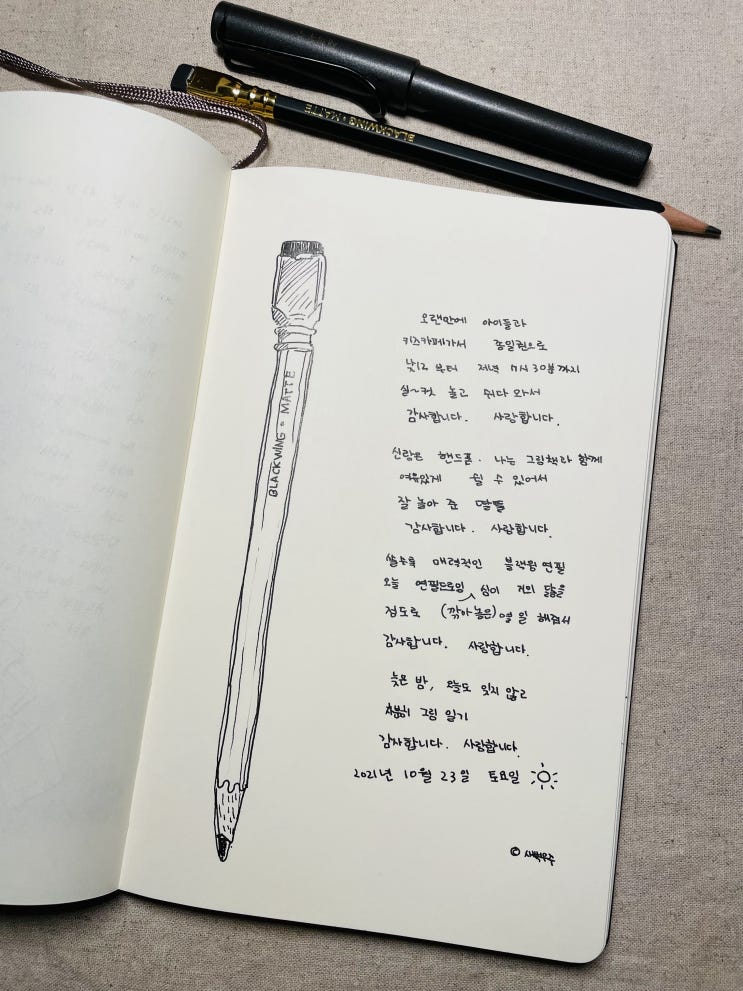 BLACKWING * MATTE
BLACKWING * MATTE
오랜만에 아이들과
키즈카페가서 종일권으로
낮12 부터 저녁 7시 30분까지
실~컷 놀고 쉬다 와서
감사합니다. 사랑합니다.
신랑은 핸드폰. 나는 그림책과 함께
여유있게 쉴 수 있어서
잘 놀아 준 딸들
감사합니다. 사랑합니다.
쓸수록 매력적인 블랙윙 연필
오늘 연필드로잉 심이 거의 닳을
정도로 (깎아놓은) 열일 해줘서
감사합니다. 사랑합니다.
늦은 밤, 오늘도 잊지 않고
차분히 그림 일기
감사합니다. 사랑합니다.
2021년 10월 23일 토요일
© 새벽우주